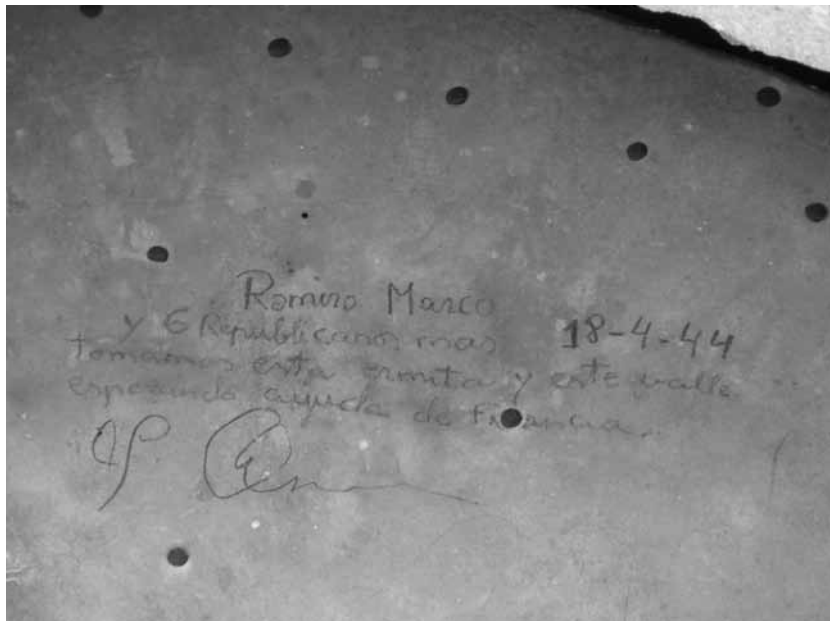 Ramiro Marco
y 6 Republicanos mas 18-4-44
tomamos esta ermita y este valle
esperando ayuda de Francia.